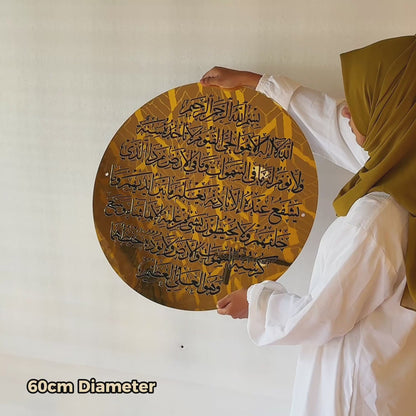 بسم الله الرحمن الرحيم
الله لا إله إلا هو الحي القيوم لا تأخذه سنة
ولا نوم له ما في السموات وما في الأرض من ذا الذي
يشفع عنده إلا بإذنه يعلم ما بين أيديهم وما
خلفهم ولا يحيطون بشيء من علمه إلا بما شاء وسع
كرسيه السموات والأرض ولا يؤده حفظهما
وهو العلي العظيم
60cm Diameter